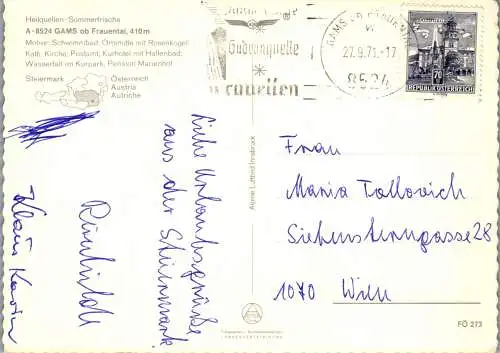 Heilquellen-Sommerfrische
A-8524 GAMS ob Frauental, 410 m
Motive: Schwimmbad, Ortsmitte mit Rosenkogel
Kath. Kirche, Postamt, Kurhotel mit Hallenbad
Wasserfall im Kurpark, Pension Marienhof
Steiermark
Österreich
Austria
Autriche
Gudrunquelle
GAMS OB FRAUENTAL
27.9.71.-17
8524
70
REPUBLIK ÖSTERREICH
Liebe Urlaubsgrüße
aus der Steiermark
Klaus Karin
Alpine Luftbild Innsbruck
Frau
Maria Tallovich
Siebensterngasse 28
1070 Wien
FÖ 273